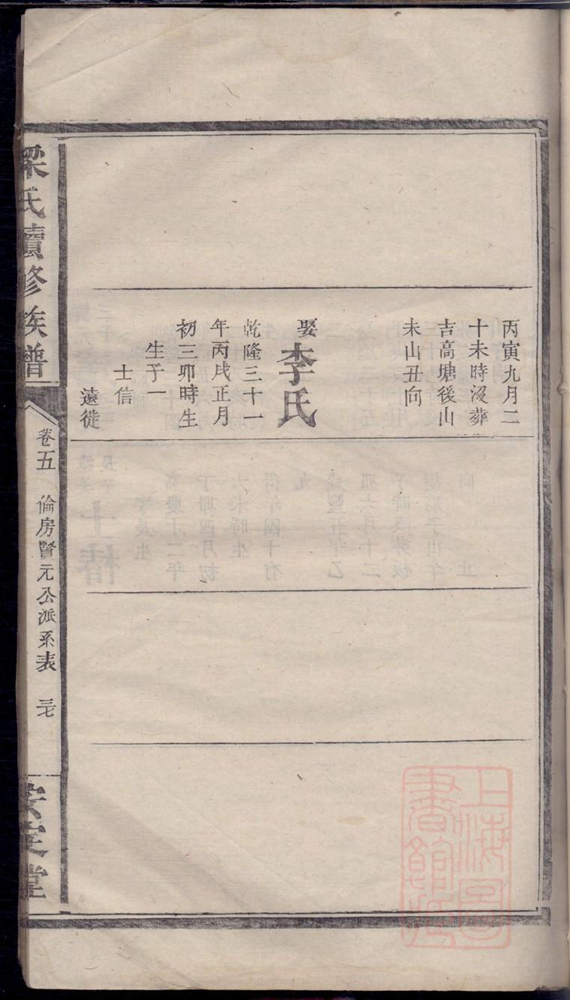 丙寅九月二
十未時沒葬
吉高塘後山
未山丑向
娶李氏
乾隆三十一
年丙戌正月
初三卯時生
生子一
士信
遠徙
梁氏續修族譜
卷五
倫房賢元公派系表
安定堂
上海圖書館藏